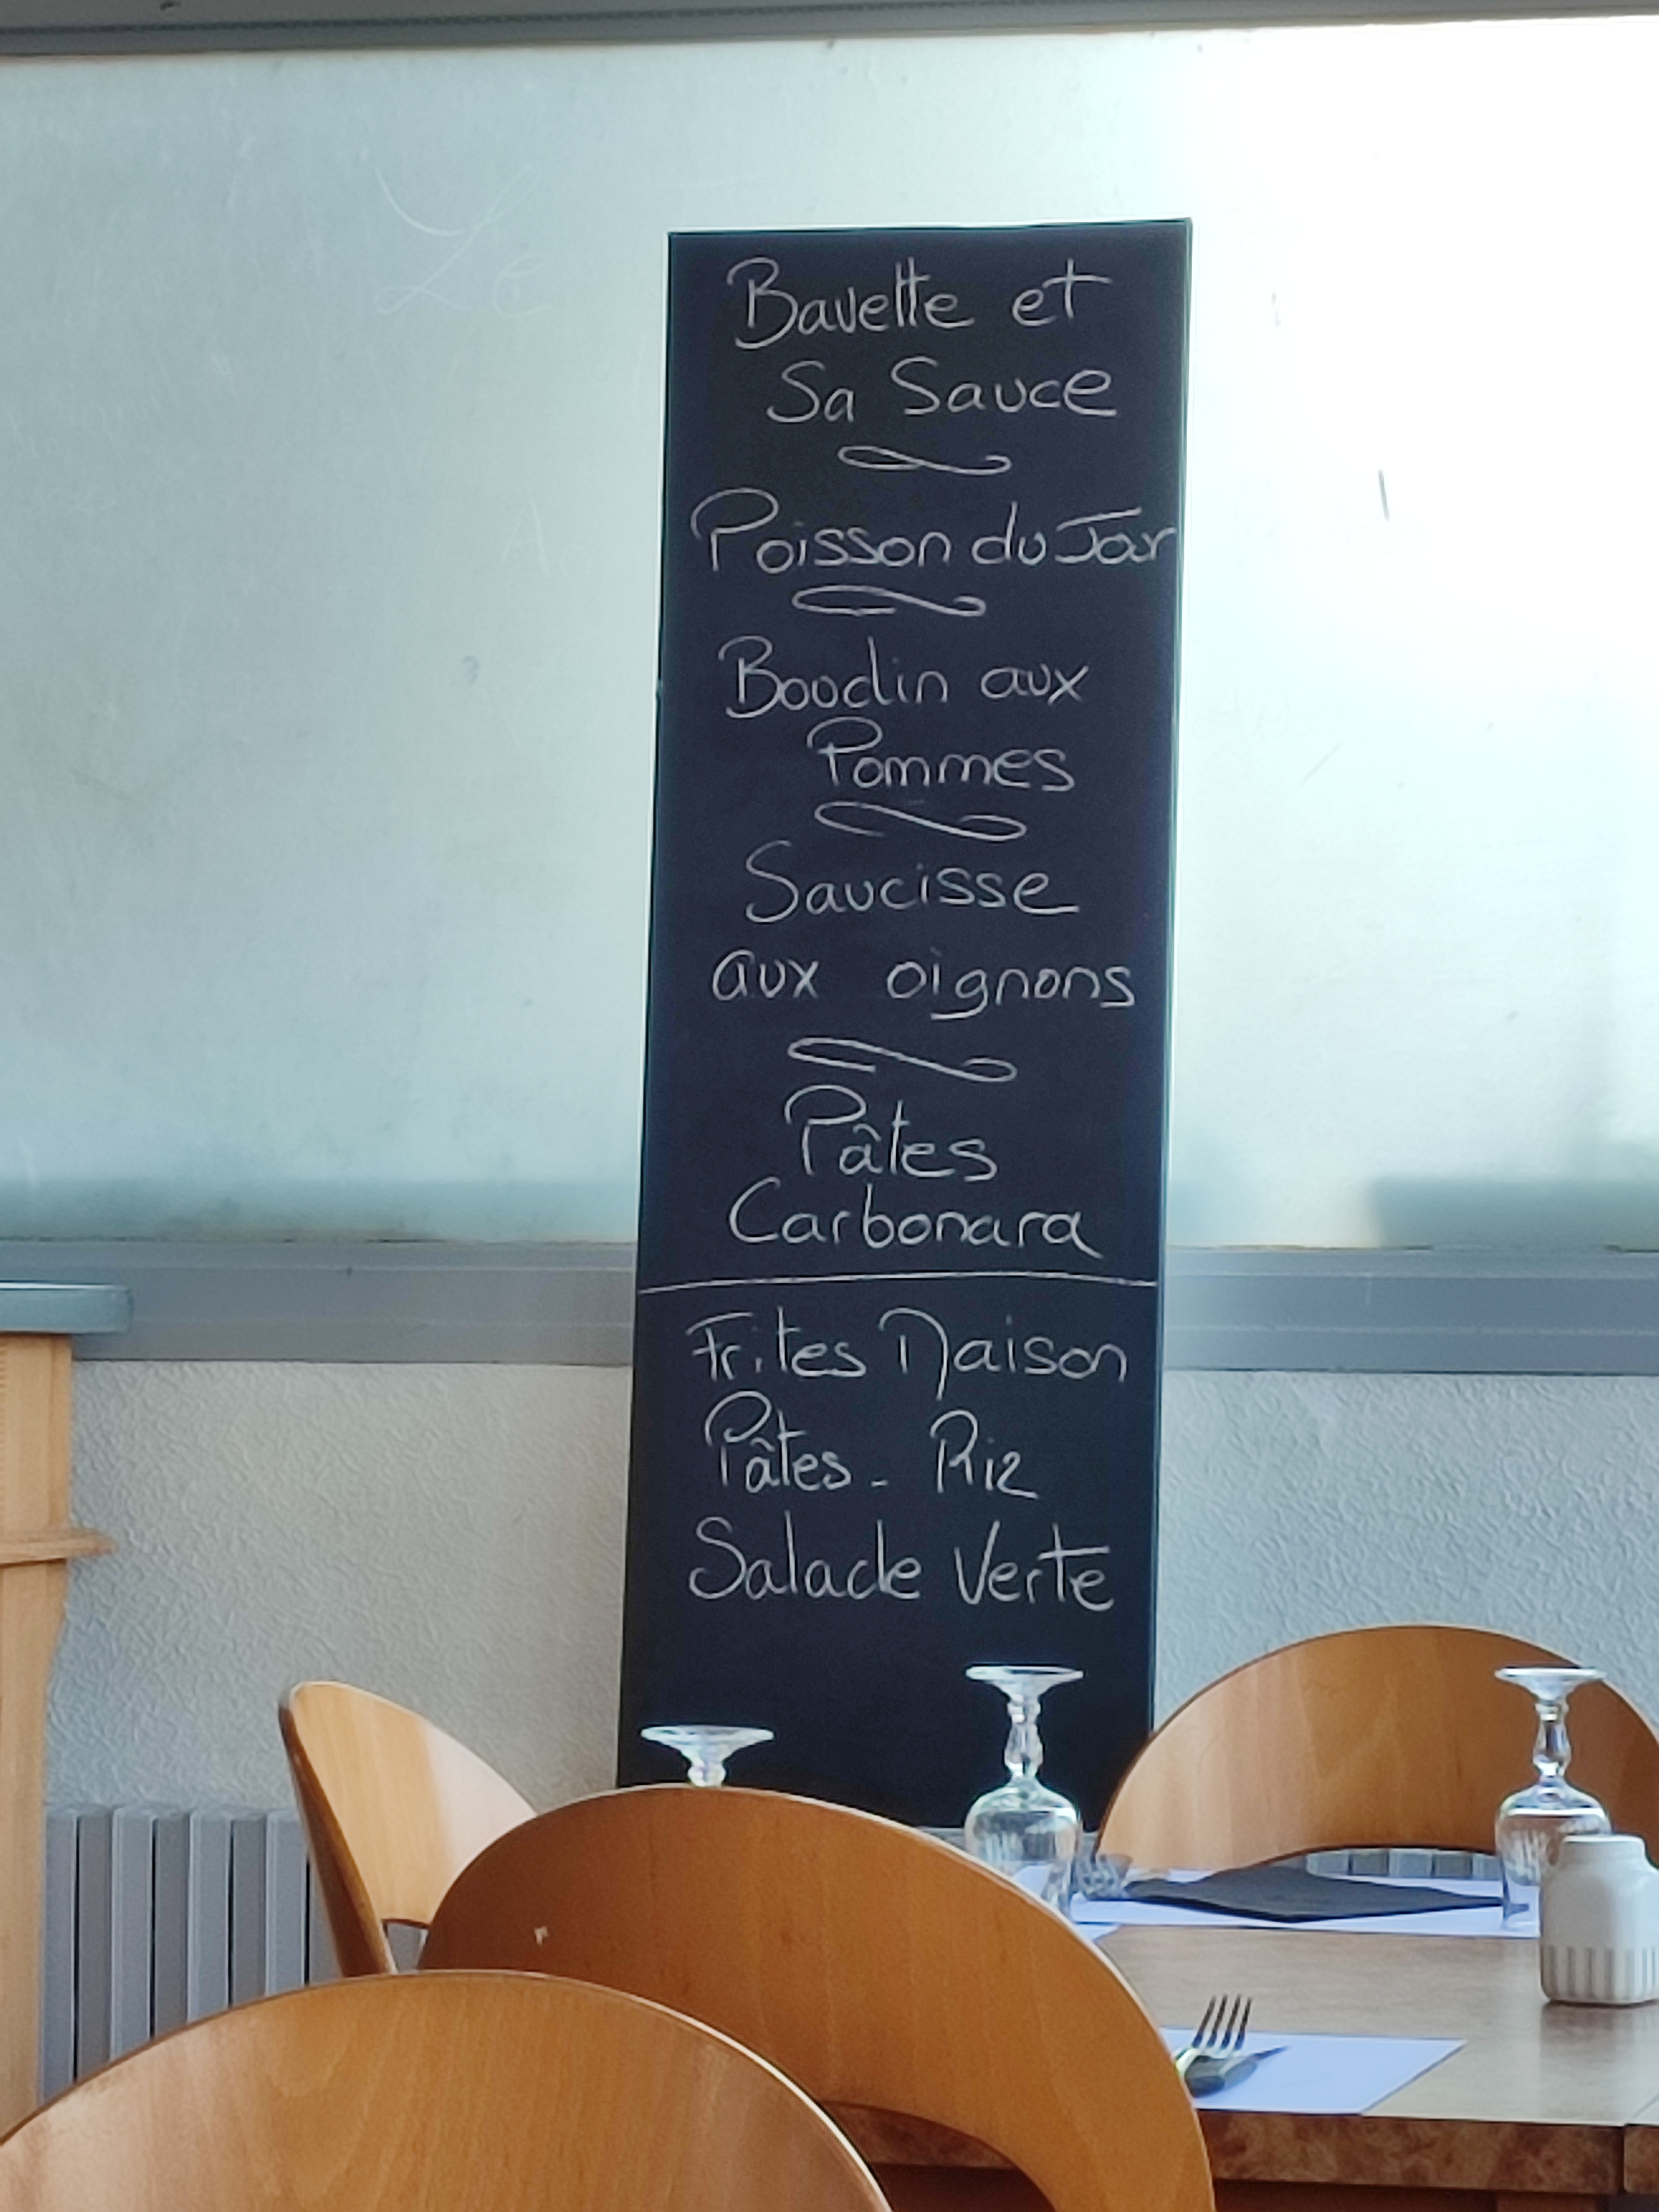 Bavette et
Sa Sauce
Poisson du Jour
Boudin aux
Pommes
Saucisse
aux oignons
Pâtes
Carbonara
Frites Maison
Pâtes - Riz
Salade Verte